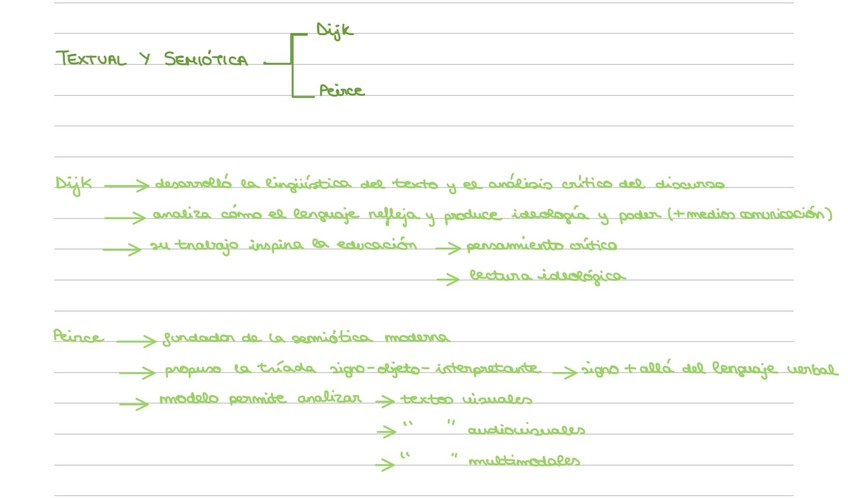 Dijk
TEXTUAL Y SEMIÓTICA
Peirce
Dijk → desarrolló la lingüística del texto y el análisis crítico del discurso
→ analiza cómo el lenguaje refleja y produce ideología y poder (+medios comunicación)
→ su trabajo inspira la educación → pensamiento crítico
→ lectura ideológica
Peirce → fundador de la semiótica moderna
→ propuso la tríada signo-objeto-interpretante → signo + allá del lenguaje verbal
→ modelo permite analizar → textos visuales
→ " " audiovisuales
→ " " multimodales